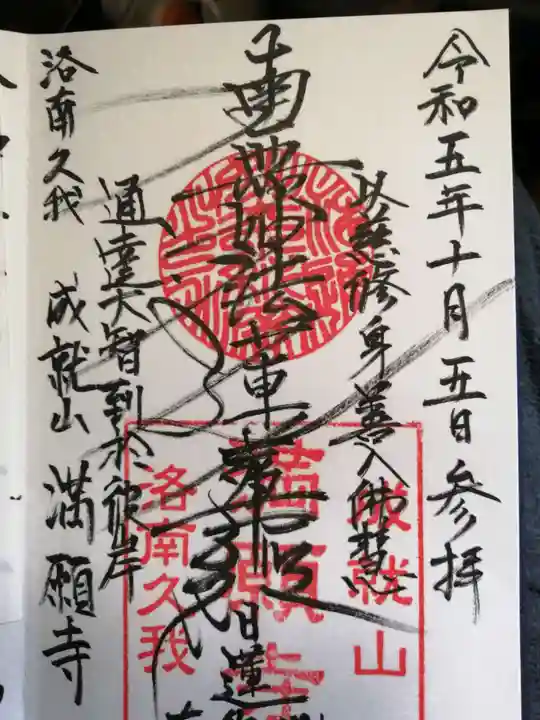 令和五年十月五日参拝
以慈修身善入佛慧
南無妙法蓮華経
日蓮
通達大智到於彼岸
洛南久我 成就山 満願寺
成就山
満願寺
洛南久我